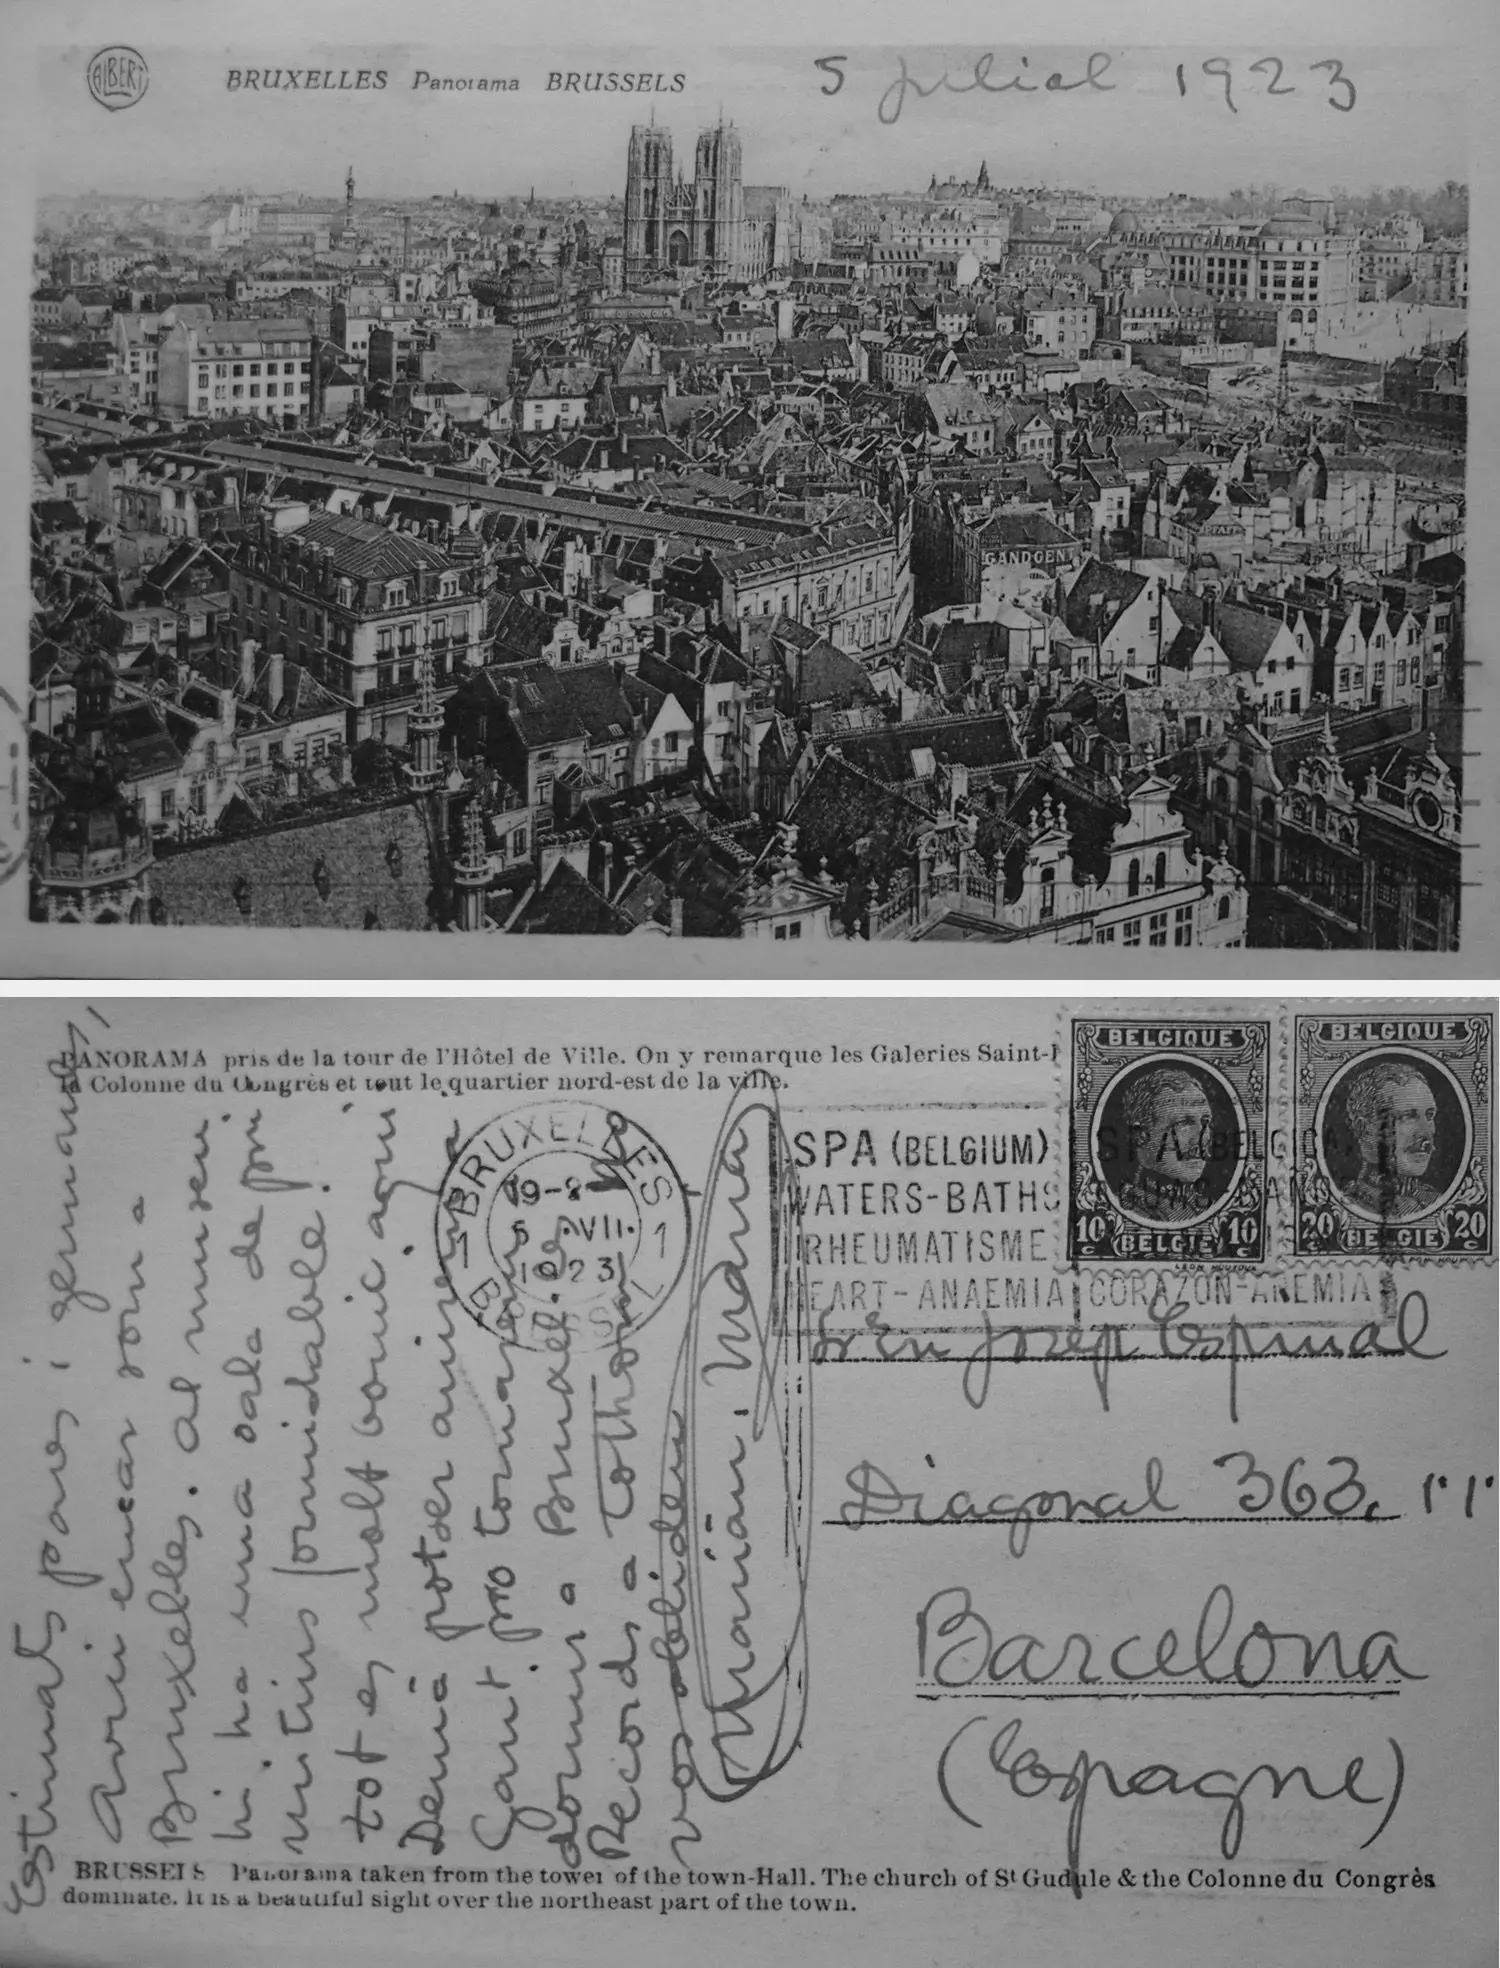 ALBERT
BRUXELLES Panorama BRUSSELS
5 juliol 1923
GANDOENS
PFAFF
PANORAMA pris de la tour de l'Hôtel de Ville. On y remarque les Galeries Saint-
la Colonne du Congrès et tout le quartier nord-est de la ville.
BELGIQUE
10 c BELGIË 10 c
BELGIQUE
20 c BELGIE 20 c
BRUXELLES
19-
5 VII
1923
1 BRUSSEL 1
SPA (BELGIUM)
WATERS-BATHS
RHEUMATISME
HEART-ANAEMIA
SPA (BELGICA)
CORAZON-ANEMIA
Estimats pares i germans,
Avui encar som a
Bruxelles. Al museu
hi ha una sala de pri
mitius formidable.
tot es molt bonic aqui
Demà potser anirem a
Gant pro tornarem
dormir a Bruxel·les
Records a tothom
vos
Marian. Manu
Sr En Josep Espinal
Diagonal 363,
Barcelona
(Espagne)
BRUSSELS Panorama taken from the tower of the town-Hall. The church of St Gudule & the Colonne du Congrès
dominate. It is a beautiful sight over the northeast part of the town.